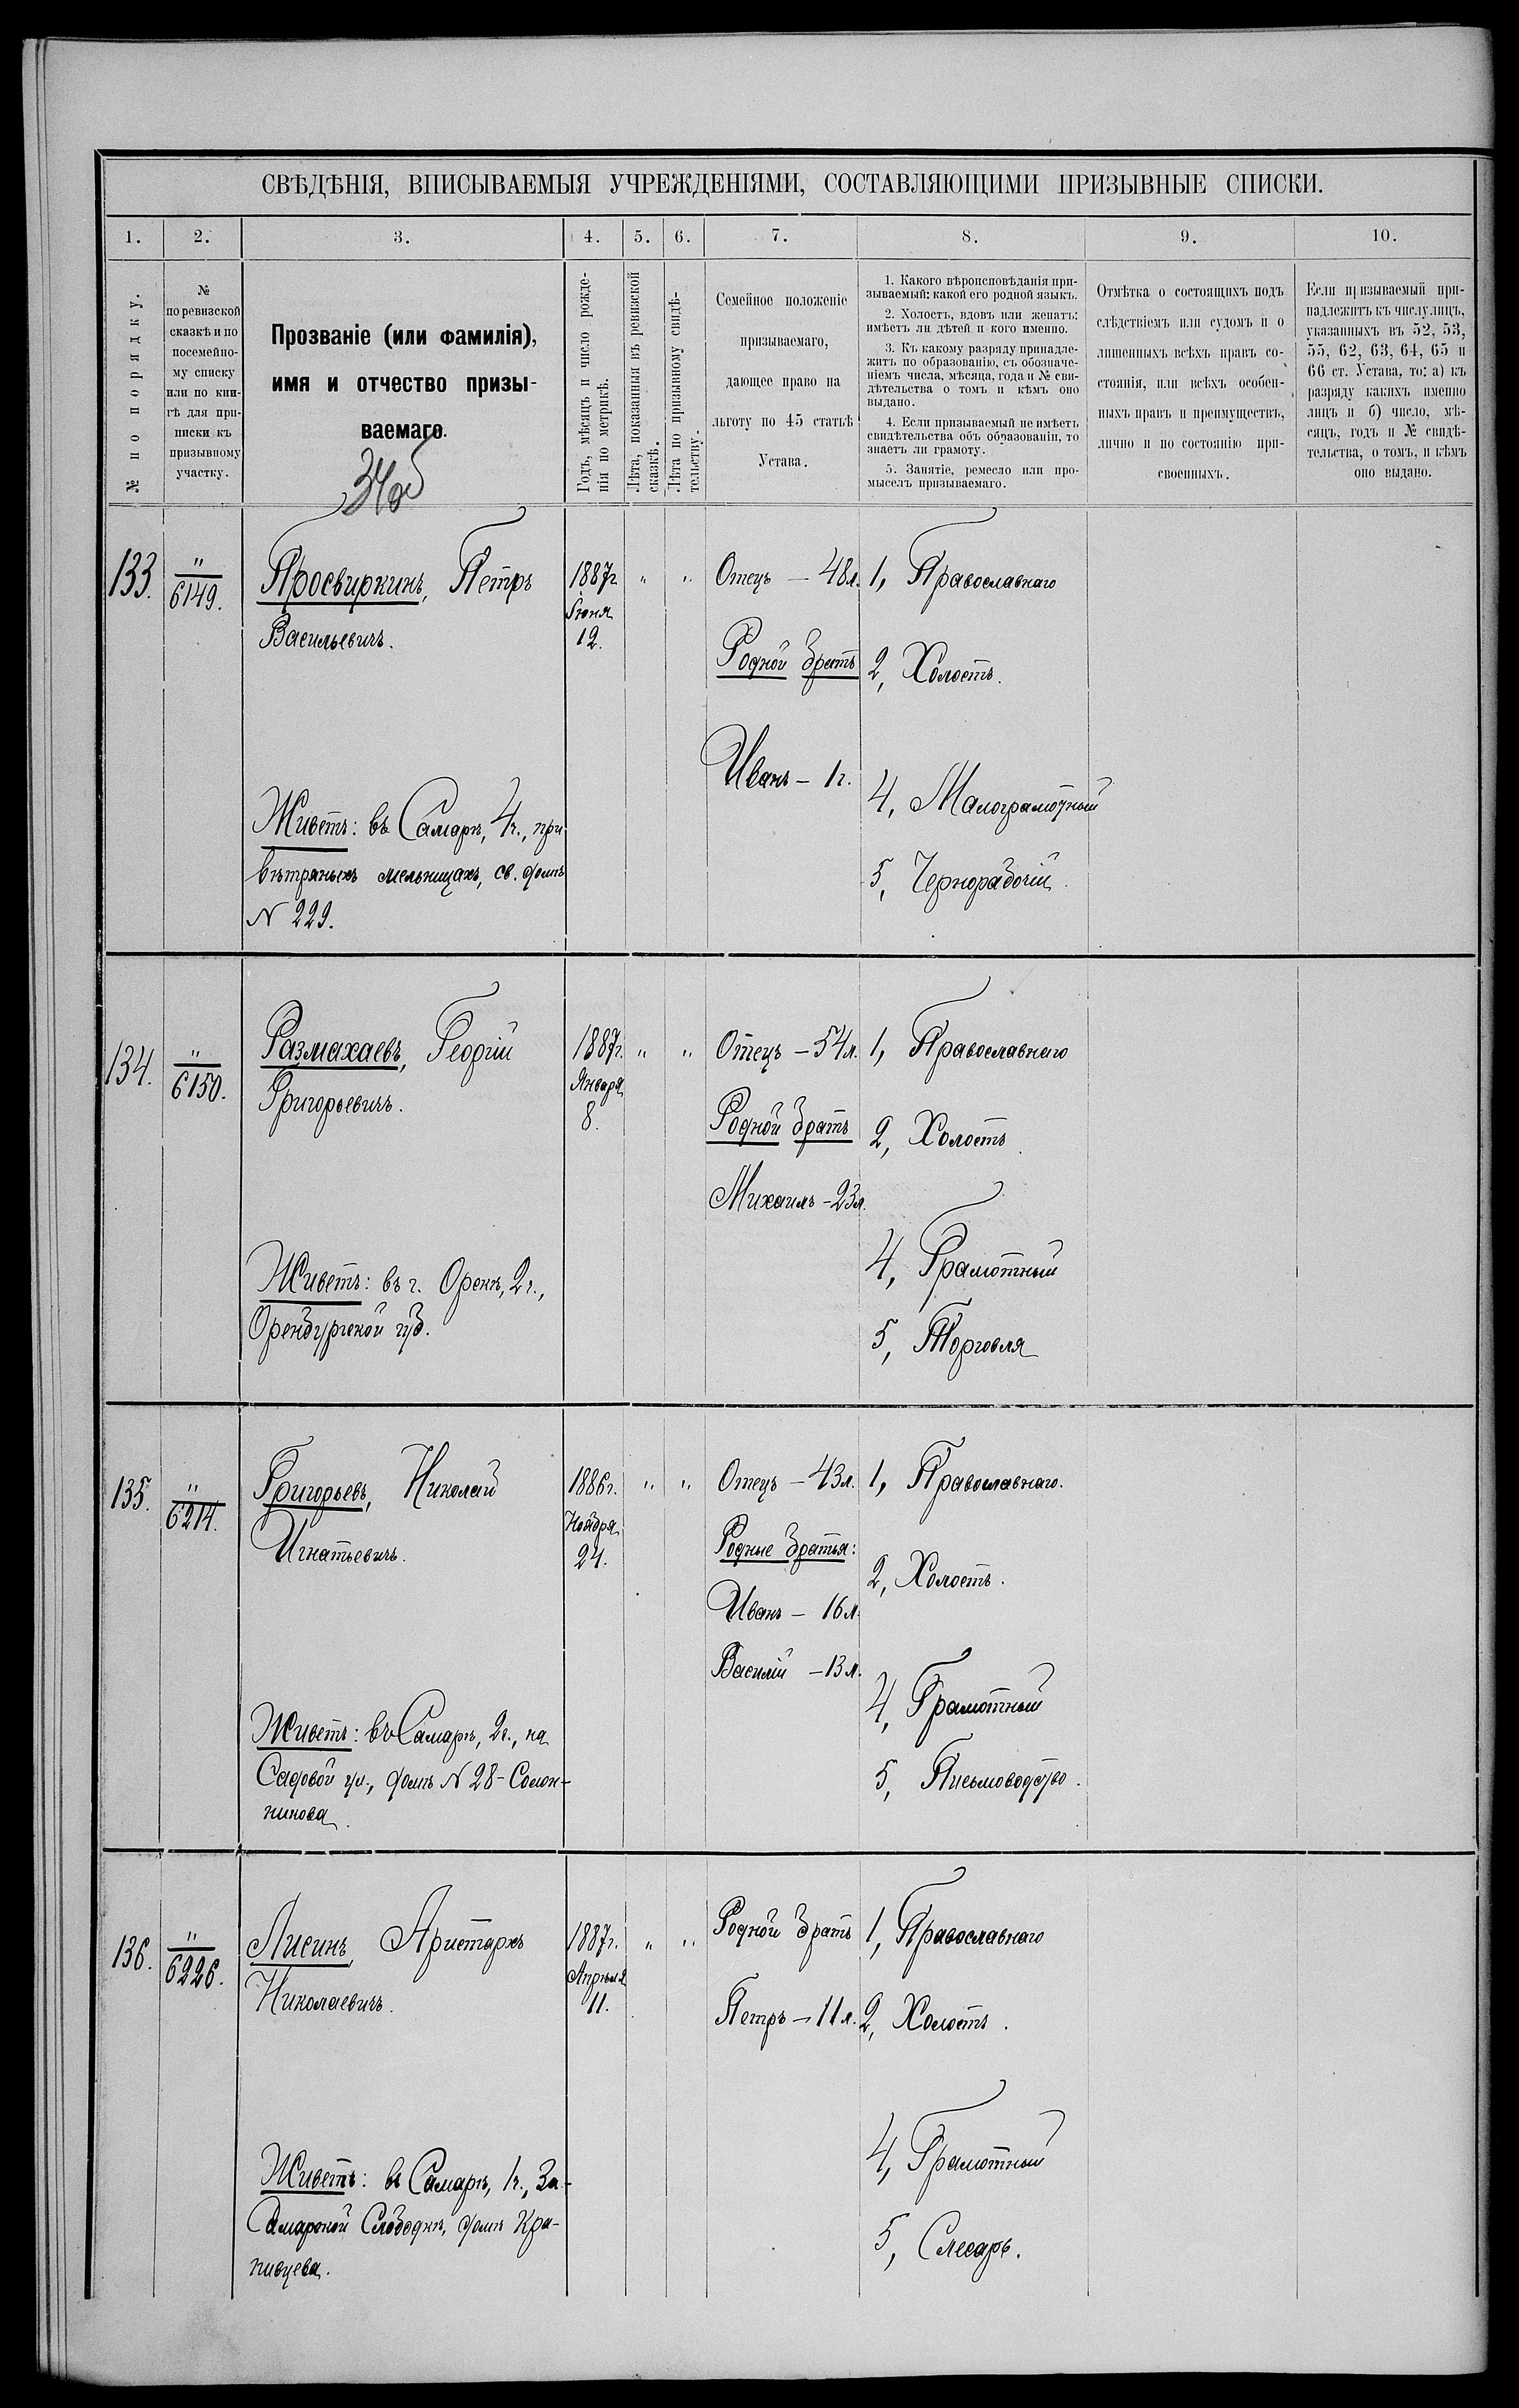 СВѢДѢНІЯ, ВПИСЫВАЕМЫЯ УЧРЕЖДЕНІЯМИ, СОСТАВЛЯЮЩИМИ ПРИЗЫВНЫЕ СПИСКИ.
1. 2. 3. 4. 5. 6. 7. 8. 9. 10.
№ по порядку.
№
по ревизской
сказкѣ и по
посемейно-
му списку
или по кни-
гѣ для при-
писки къ
призывному
участку.
Прозваніе (или фамилія),
имя и отчество призы-
ваемаго.
Годъ, мѣсяцъ и число рожде-
нія по метрикѣ.
Лѣта, показанныя въ ревизской
сказкѣ.
Лѣта по призывному свидѣ-
тельству.
Семейное положеніе
призываемаго,
дающее право на
льготу по 45 статьѣ
Устава.
1. Какого вѣроисповѣданія при-
зываемый: какой его родной языкъ.
2. Холостъ, вдовъ или женатъ:
имѣетъ ли дѣтей и кого именно.
3. Къ какому разряду принадле-
житъ по образованію, съ обозначе-
ніемъ числа, мѣсяца, года и № сви-
дѣтельства о томъ и кѣмъ оно
выдано.
4. Если призываемый не имѣетъ
свидѣтельства объ образованіи, то
знаетъ ли грамоту.
5. Занятіе, ремесло или про-
мыселъ призываемаго.
Отмѣтка о состоящихъ подъ
слѣдствіемъ или судомъ и о
лишенныхъ всѣхъ правъ со-
стоянія, или всѣхъ особен-
ныхъ правъ и преимуществъ,
лично и по состоянію при-
своенныхъ.
Если призываемый при-
надлежитъ къ числу лицъ,
указанныхъ въ 52, 53,
55, 62, 63, 64, 65 и
66 ст. Устава, то: а) къ
разряду какихъ именно
лицъ и б) число, мѣ-
сяцъ, годъ и № свидѣ-
тельства, о томъ, и кѣмъ
оно выдано.
133.
"
6149.
Просвиркинъ, Петръ
Васильевичъ.
Живетъ: въ Самарѣ, 4ч., при
вѣтряныхъ мельницахъ, св. домъ
N 229.
1887г.
Іюня
12.
" "
Отецъ – 48л.
Родной братъ
Иванъ – 1г.
1, Православнаго
2, Холостъ.
4, Малограмотный
5, Чернорабочій.
134.
"
6150.
Размахаевъ, Георгій
Григорьевичъ.
Живетъ: въ г. Орскѣ, 2ч.,
Оренбургской губ.
1887г.
Января
8.
" "
Отецъ – 54л.
Родной братъ
Михаилъ – 23л.
1, Православнаго
2, Холостъ.
4, Грамотный
5, Торговля
135.
"
6214.
Григорьевъ, Николай
Игнатьевичъ.
Живетъ: въ Самарѣ, 2ч., на
Садовой ул., домъ N 28 – Солон-
никова.
1886г.
Ноября
24.
" "
Отецъ – 43л.
Родные братья:
Иванъ – 16л.
Василій – 13л.
1, Православнаго.
2, Холостъ.
4, Грамотный
5, Письмоводство.
136.
"
6226.
Лисинъ, Аристархъ
Николаевичъ.
Живетъ: въ Самарѣ, 1ч., За-
Самарской Слободкѣ, домъ Кра-
пивцева.
1887г.
Апрѣля
11.
" "
Родной братъ
Петръ – 11л.
1, Православнаго
2, Холостъ.
4, Грамотный
5, Слесарь.